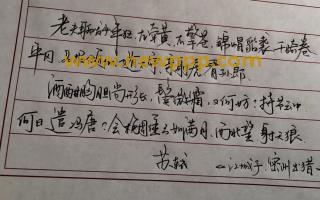 老夫聊发少年狂,左牵黄,右擎苍,锦帽貂裘,千骑卷
平冈 看孙郎
酒酣胸胆尚开张,鬓微霜,又何妨?持节云中
何日遣冯唐?会挽雕弓如满月,西北望,射天狼
苏轼 《江城子·密州出猎